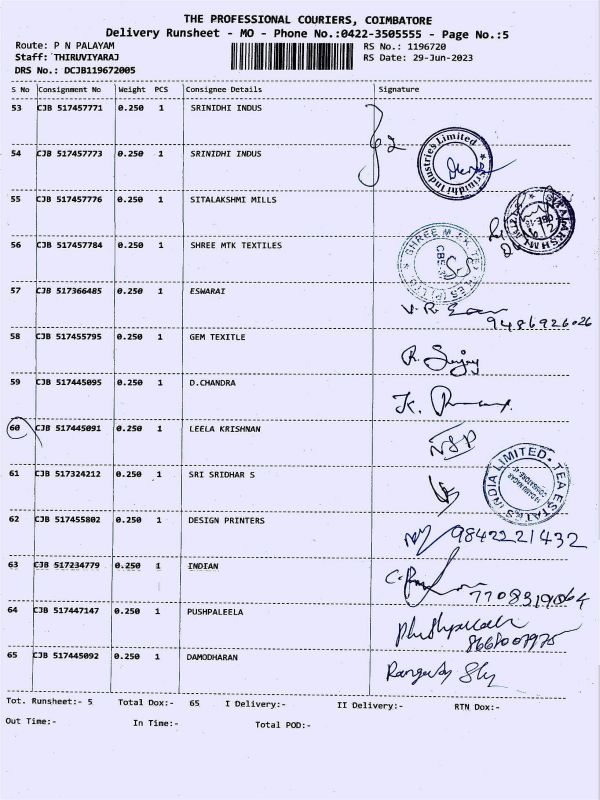 THE PROFESSIONAL COURIERS, COIMBATORE
Delivery Runsheet - MO - Phone No.:0422-3505555 - Page No.:5
Route: P N PALAYAM RS No.: 1196720
Staff: THIRUVIYARAJ RS Date: 29-Jun-2023
DRS No.: DCJB119672005
S No Consignment No Weight PCS Consignee Details Signature
53 CJB 517457771 0.250 1 SRINIDHI INDUS
54 CJB 517457773 0.250 1 SRINIDHI INDUS
55 CJB 517457776 0.250 1 SITALAKSHMI MILLS
56 CJB 517457784 0.250 1 SHREE MTK TEXTILES
57 CJB 517366485 0.250 1 ESWARAI
9486926026
58 CJB 517455795 0.250 1 GEM TEXITLE
R. Sanjay
59 CJB 517445095 0.250 1 D.CHANDRA
60 CJB 517445091 0.250 1 LEELA KRISHNAN
NSP
61 CJB 517324212 0.250 1 SRI SRIDHAR S
INDIA LIMITED. TEA ESTATES
62 CJB 517455802 0.250 1 DESIGN PRINTERS
9842221432
63 CJB 517234779 0.250 1 INDIAN
64 CJB 517447147 0.250 1 PUSHPALEELA
65 CJB 517445092 0.250 1 DAMODHARAN
Tot. Runsheet:- 5 Total Dox:- 65 I Delivery:- II Delivery:- RTN Dox:-
Out Time:- In Time:- Total POD:-